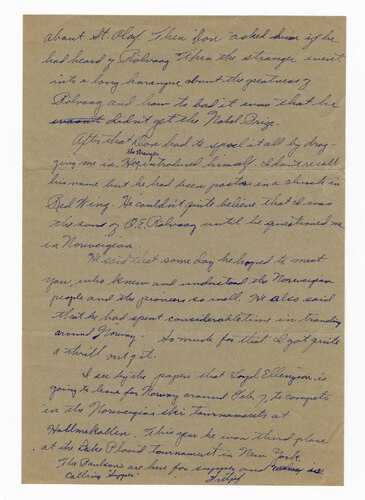 about St. Olaf. Then Don asked him if he
had heard of Rolvaag. Then the stranger went
into a long harangue about the greatness of
Rolvaag and how to bad it was that he
wasn't didn't get the Nobel Prize.
After that Don had to spoil it all by drag-
ging me in. He the stranger introduced himself. I don't recall
his name but he had been pastor in a church in
Red Wing. He couldn't quite believe that I was
the son of O.E. Rolvaag until he questioned me
in Norwegian.
He said that some day he hoped to meet
you, who knew and understood the Norwegian
people and the pioneers so well. He also said
that he had spent considerable time in traveling
around Norway. So much for that. I got quite
a thrill out of it.
I see by the papers that Lloyd Ellingson is
going to leave for Norway around Feb. 7, to compete
in the Norwegian ski tournaments at
Hollmekollen. This year he won third place
at the Lake Placid tournament in New York.
The Paulson's are here for supper and is
calling "supper"